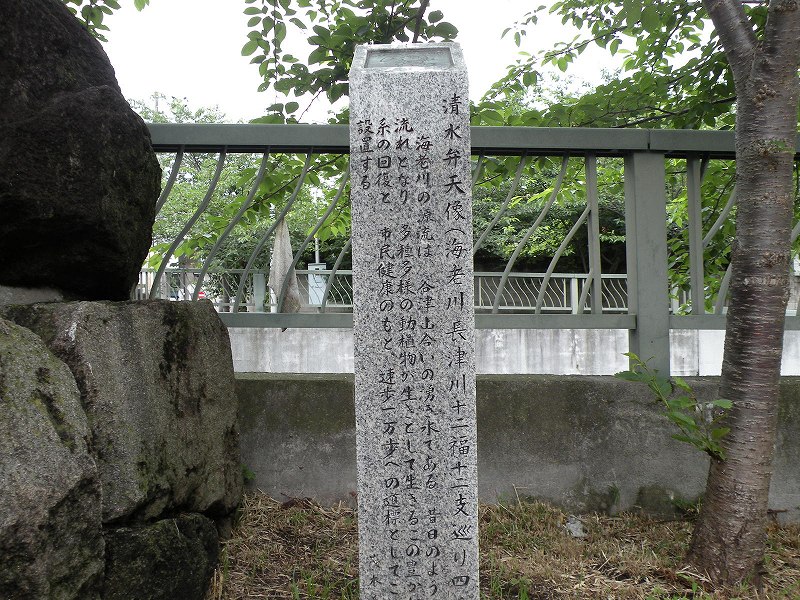 清水弁天像(海老川長津川十二福十二支巡り四
海老川の源流は、合津山合いの湧き水である。昔日のよう
流れとなり、多種多様の動植物が生々として生きるこの豊か
系の回復と、市民健康のもと、速歩一万歩への道標としてこ
設置する。